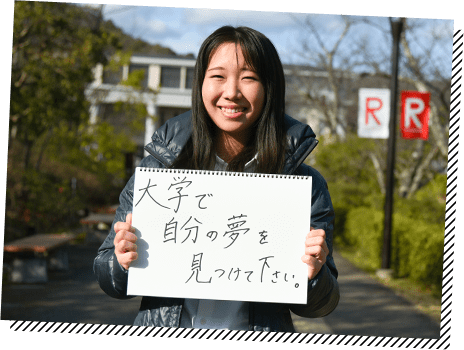 大学で
自分の夢を
見つけて下さい。
R R